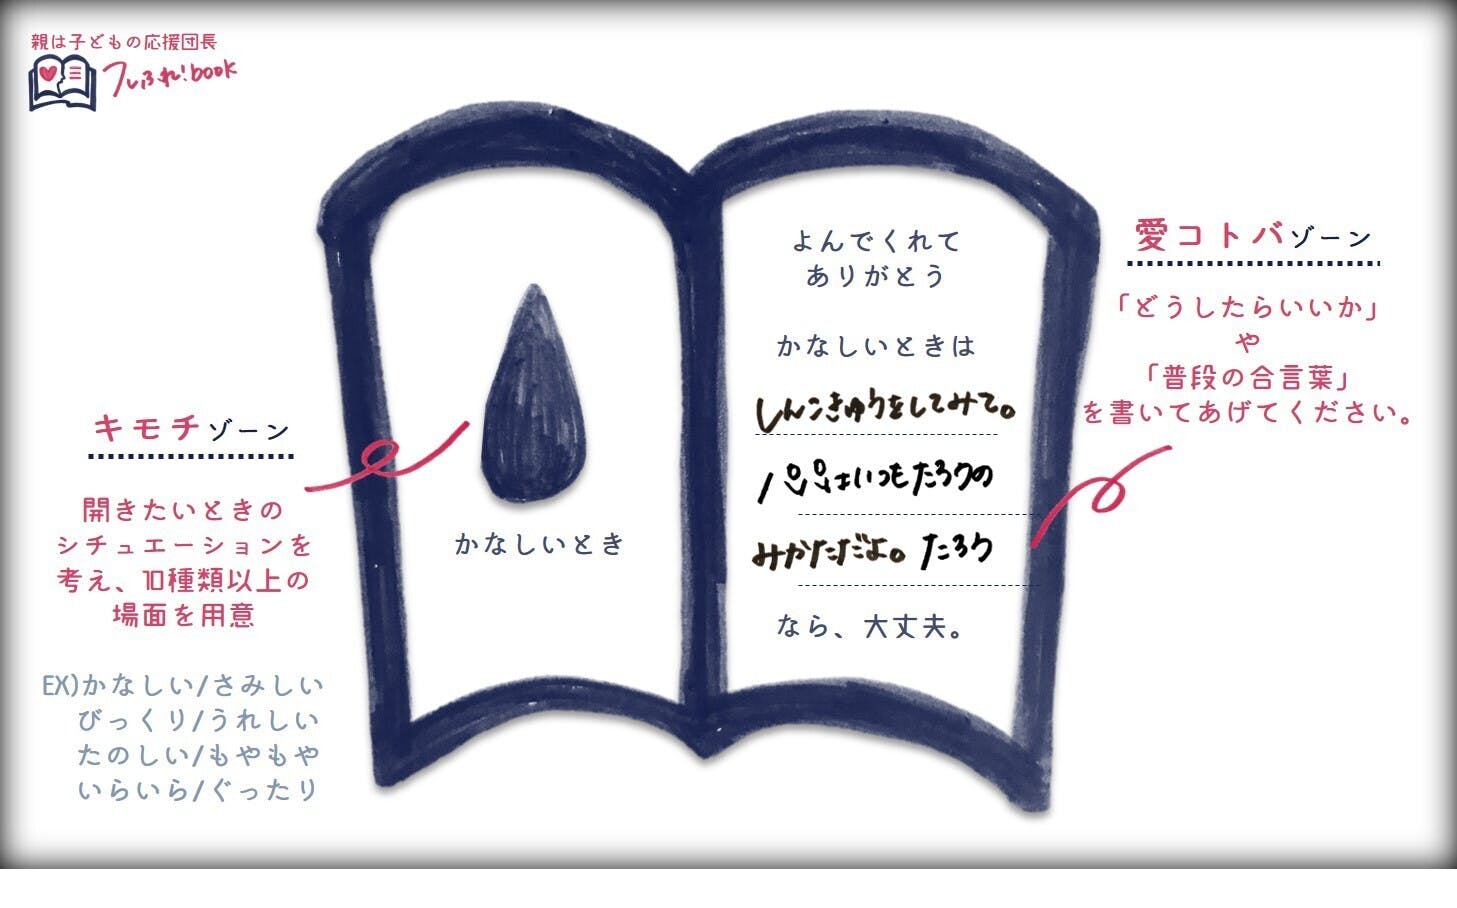 親は子どもの応援団長
フレふれ!book
キモチゾーン
開きたいときの
シチュエーションを
考え、10種類以上の
場面を用意
EX)かなしい/さみしい
びっくり/うれしい
たのしい/もやもや
いらいら/ぐったり
かなしいとき
よんでくれて
ありがとう
かなしいときは
しんこきゅうをしてみて。
パパはいつもたろうの
みかただよ。たろう
なら、大丈夫。
愛コトバゾーン
「どうしたらいいか」
や
「普段の合言葉」
を書いてあげてください。